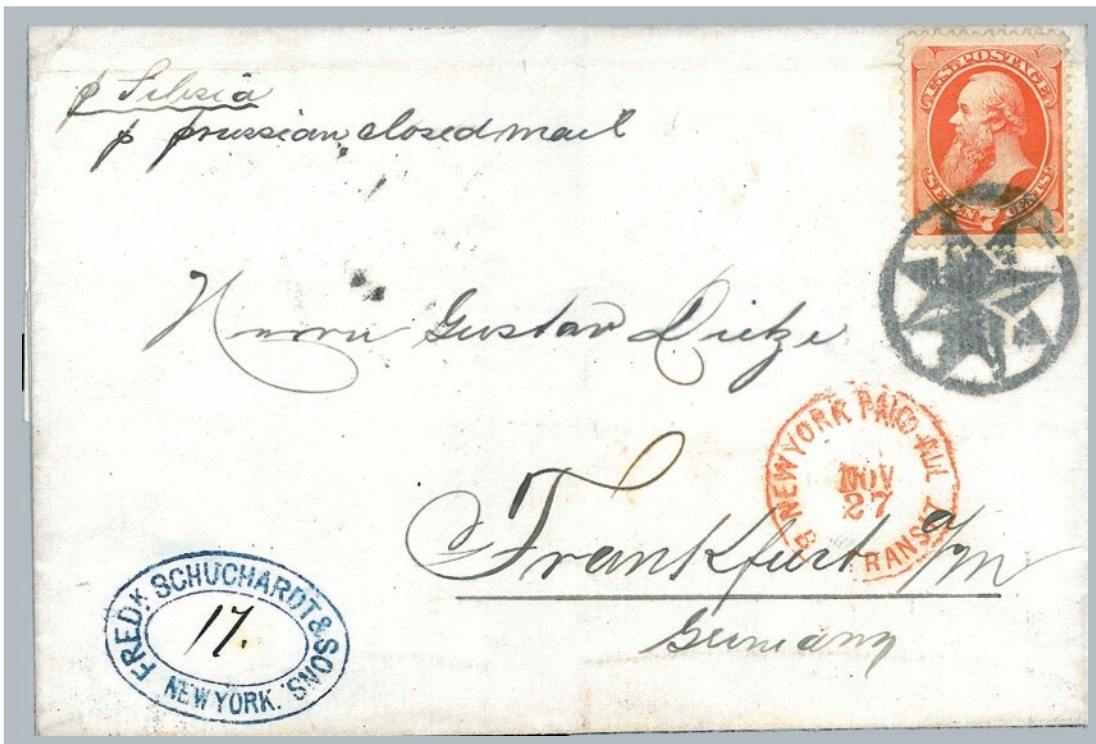 p Silesia
p prussian closed mail
U.S. POSTAGE
SEVEN 7 CENTS
Herrn Gustav Dietze
NEW YORK PAID ALL
NOV
27
BR TRANSIT
Frankfurt a/m
Germany
FREDK SCHUCHARDT & SONS
17.
NEW YORK.